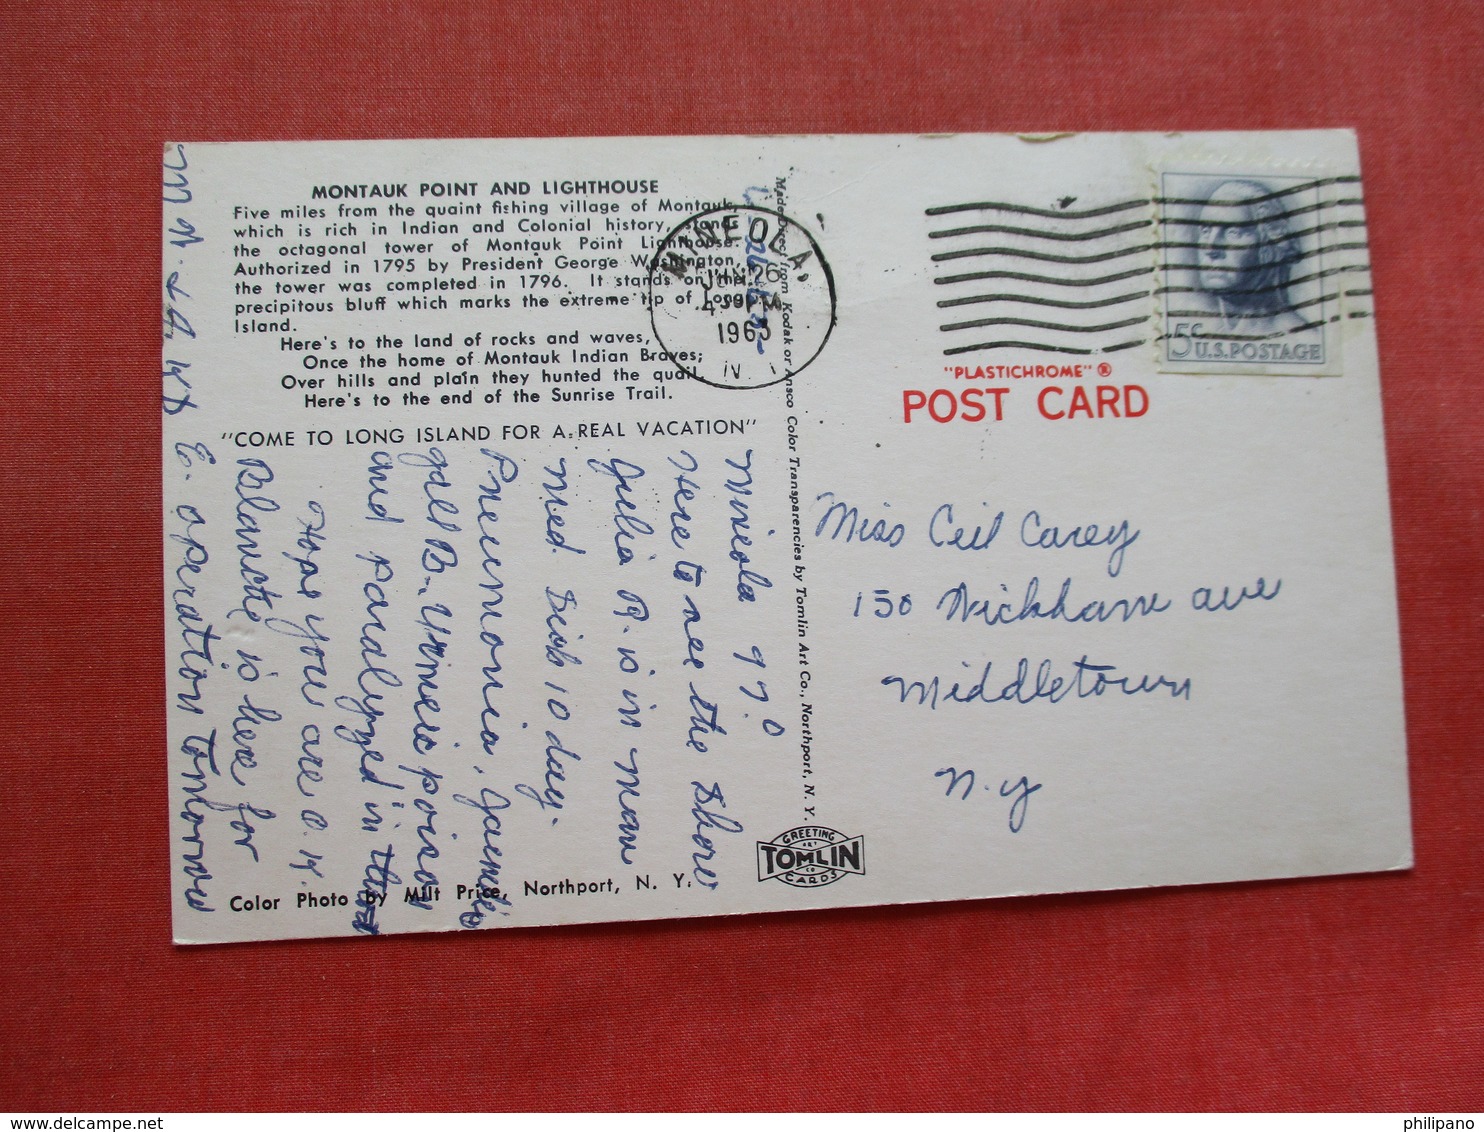 MONTAUK POINT AND LIGHTHOUSE
Five miles from the quaint fishing village of Montauk,
which is rich in Indian and Colonial history, stands
the octagonal tower of Montauk Point Lighthouse.
Authorized in 1795 by President George Washington,
the tower was completed in 1796. It stands on the
precipitous bluff which marks the extreme tip of Long
Island.
Here's to the land of rocks and waves,
Once the home of Montauk Indian Braves;
Over hills and plain they hunted the quail,
Here's to the end of the Sunrise Trail.
"COME TO LONG ISLAND FOR A REAL VACATION"
6-26-63
Mineola 97.0
Here to see the show
Julia R. is in man
Med. Disb 10 day.
Pneumonia,
gall B- Urmeic poison
and paralyzed in
Hope you are O.K.
Blanche is here for
E. operation Tomorrow
Color Photo by Milt Price, Northport, N. Y.
Made Direct from Kodak or Ansco Color Transparencies by Tomlin Art Co., Northport, N. Y.
GREETING
ART
TOMLIN
CO
CARDS
MINEOLA,
JUN 26
4 30 PM
1963
N
5¢ U.S. POSTAGE
"PLASTICHROME" ®
POST CARD
Miss Ceil Carey
150 Wickham ave
Middletown
N.Y
philipano